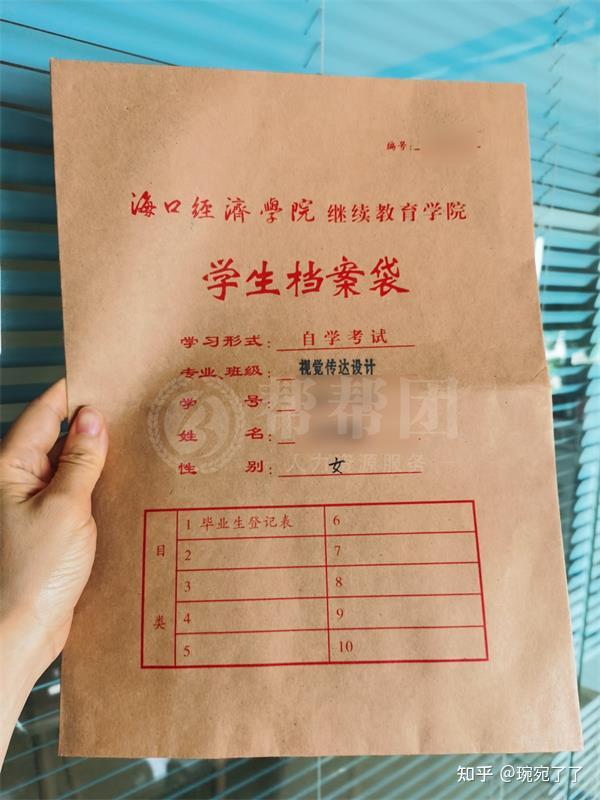 编号:
海口经濟學院 继续教育学院
学生档案袋
学习形式: 自学考试
专业班级: 视觉传达设计
学 号:
姓 名:
性 别: 女
帮帮团
人力资源服务
目类
1 毕业生登记表 6
2 7
3 8
4 9
5 10
知乎 @琬宛了了